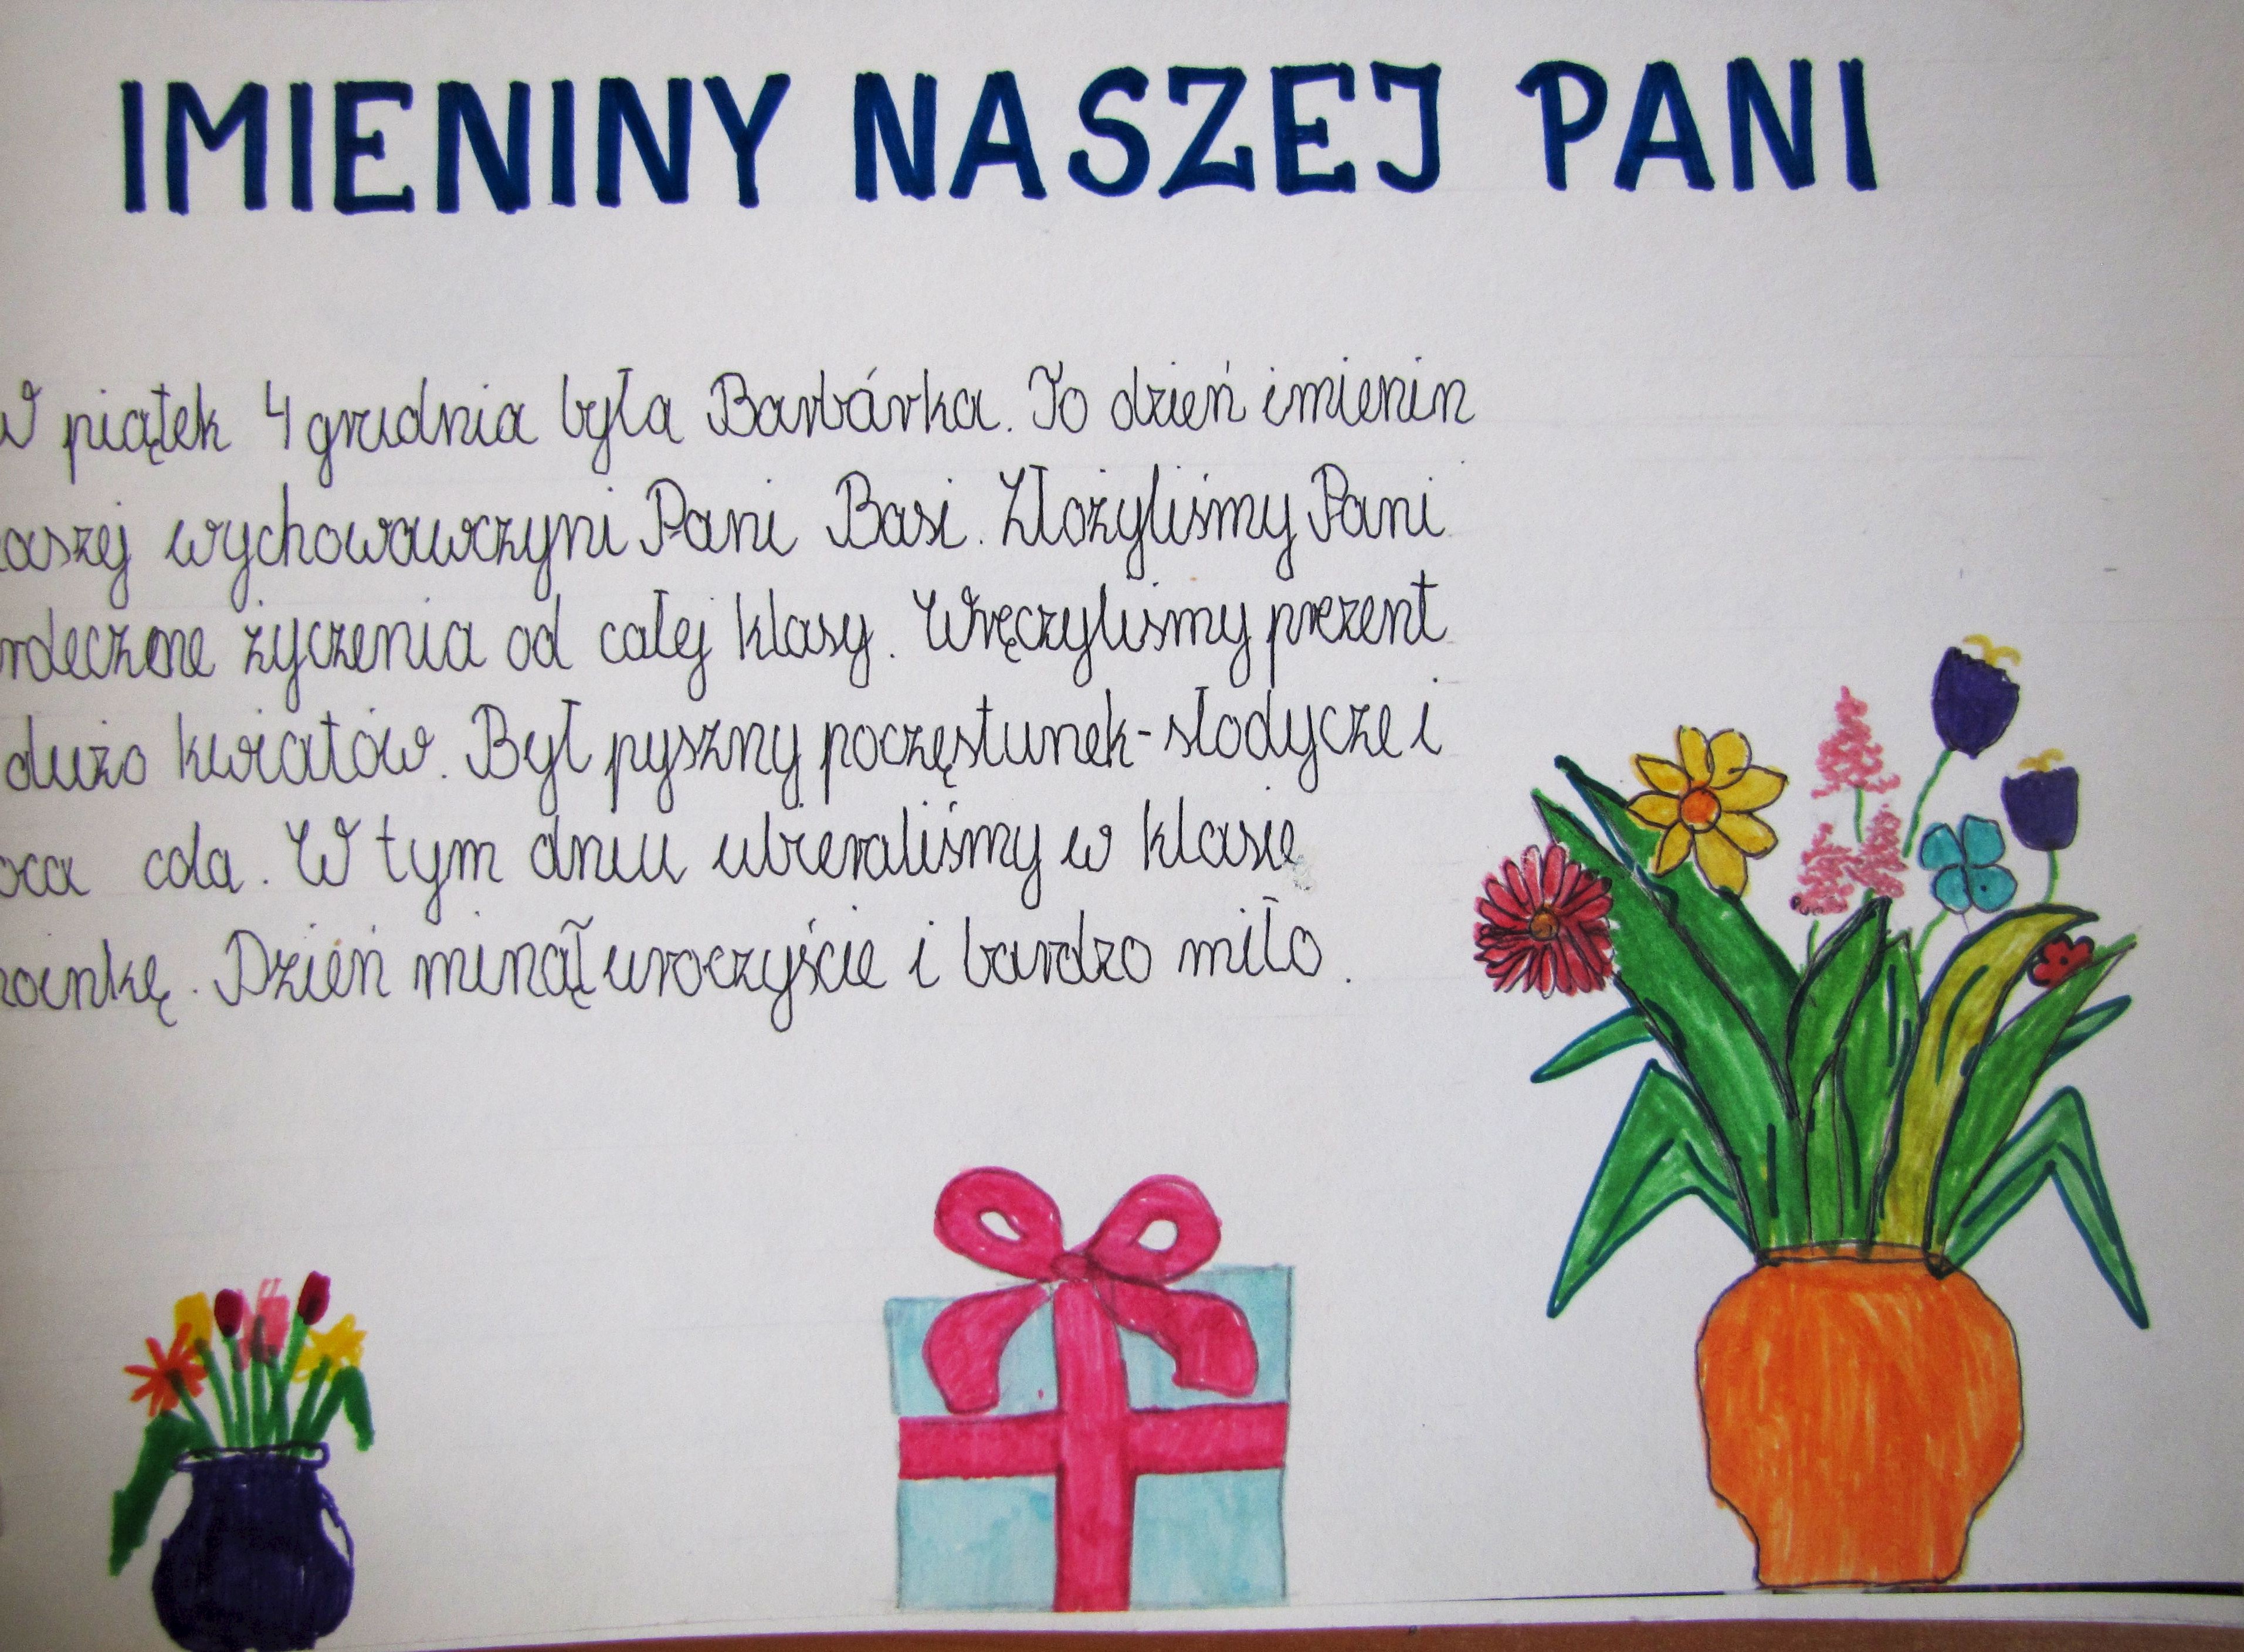 IMIENINY NASZEJ PANI
W piątek 4 grudnia była Barbárka. To dzień imienin
aszej wychowawczyni Pani Basi. Złożyliśmy Pani
rdeczne życzenia od całej klasy. Wręczyliśmy prezent
dużo kwiatów. Był pyszny poczęstunek-słodycze i
oca cola. W tym dniu ubieraliśmy w klasie
oinkę. Dzień minął uroczyście i bardzo miło.